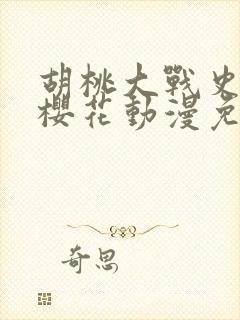 胡桃大戰史
櫻花動漫免
奇思